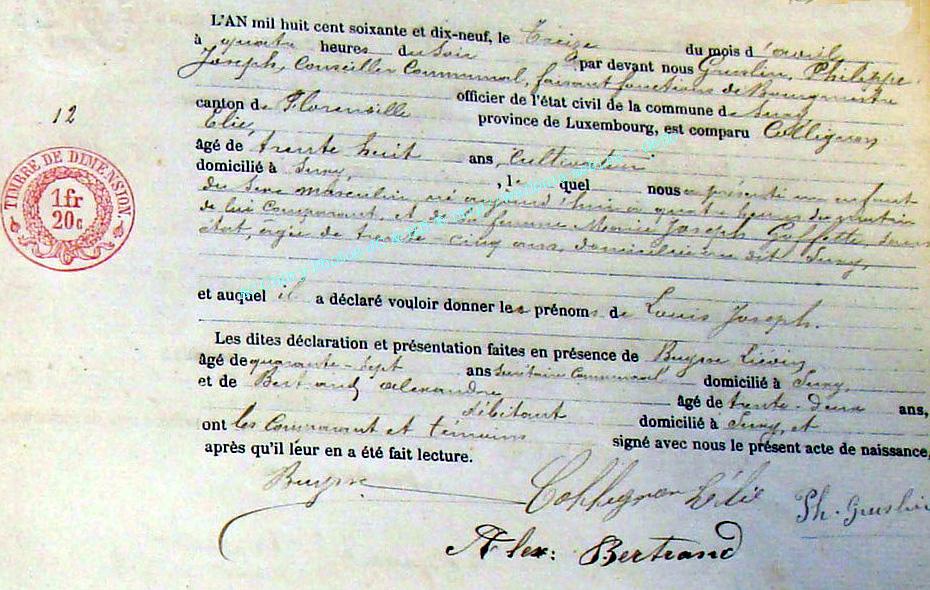 L'AN mil huit cent soixante et dix-neuf, le Treize du mois d'avril
à quatre heures du Soir par devant nous Guislin, Philippe
Joseph, Conseiller Communal, faisant fonctions de Bourgmestre
officier de l'état civil de la commune de Suxy
canton de Florenville province de Luxembourg, est comparu Collignon
Elie,
âgé de trente huit ans, Cultivateur
domicilié à Suxy, , le quel nous a présenté un enfant
du sexe masculin, né aujourd'hui à quatre heures du matin
de lui comparant, et de sa femme Marie Joseph Goffette, sans
état, âgée de trente-cinq ans, domiciliée au dit Suxy,
et auquel il a déclaré vouloir donner les prénoms de Louis Joseph.
Les dites déclaration et présentation faites en présence de Buysse Liévin
âgé de quarante-sept ans Secrétaire Communal domicilié à Suxy,
et de Bertrand Alexandre âgé de trente-deux ans,
débitant domicilié à Suxy, et
ont les Comparant et témoins signé avec nous le présent acte de naissance,
après qu'il leur en a été fait lecture.
Buysse Collignon Elie Ph. Guislin
Alex: Bertrand
12
TIMBRE DE DIMENSION
1 fr
20 c